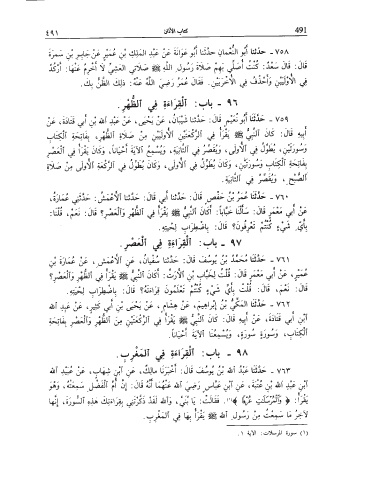 491 كتاب الأذان ٤٩١
٧٥٨ - حدثنا أبو النُّعمانِ حدثنا أبو عَوانةَ عن عبدِ الملكِ بنِ عُمَيرٍ عن جابرِ بنِ سَمُرةَ
قال: قال سعدٌ: كُنْتُ أُصلِّي بهم صلاةَ رسولِ اللهِ ﷺ صلاتَيِ العَشِيِّ لا أَخْرِمُ عنها: أَركُدُ
في الأُولَيَينِ وأَحْذِفُ في الأُخْرَيَينِ. فقال عُمرُ رضيَ اللهُ عنه: ذلكَ الظنُّ بك.
٩٦ - باب: القِراءةِ في الظُّهرِ
٧٥٩ - حدَّثنا أبو نُعَيمٍ قال: حدَّثنا شَيبانُ، عن يَحيى، عن عبدِ اللهِ بنِ أبي قَتادةَ، عن
أبيه قال: كان النبيُّ ﷺ يَقْرَأُ في الرَّكعَتَينِ الأُولَيَينِ مِن صلاةِ الظُّهرِ، بفاتِحةِ الكِتابِ
وسُورَتَينِ، يُطَوِّلُ في الأُولى، ويُقَصِّرُ في الثانيةِ، ويُسمِعُ الآيةَ أحيانًا، وكان يَقْرَأُ في العَصرِ
بفاتِحةِ الكتابِ وسُورَتَينِ، وكان يُطَوِّلُ في الأُولى، وكان يُطَوِّلُ في الرَّكعةِ الأُولى مِن صلاةِ
الصُّبحِ، ويُقَصِّرُ في الثانيةِ.
٧٦٠ - حدَّثنا عُمرُ بنُ حَفصٍ قال: حدَّثنا أبي قال: حدَّثنا الأعمَشُ: حدَّثني عُمارةُ،
عن أبي مَعمَرٍ قال: سأَلْنا خَبَّابًا: أكان النبيُّ ﷺ يَقْرَأُ في الظُّهرِ والعَصرِ؟ قال: نَعَمْ، قُلنا:
بأيِّ شيءٍ كُنْتُم تَعرِفونَ؟ قال: باضْطِرابِ لِحيَتِه.
٩٧ - باب: القِراءةِ في العَصرِ
٧٦١ - حدَّثنا محمدُ بنُ يوسُفَ قال: حدَّثنا سُفيانُ، عن الأعمَشِ، عن عُمارةَ بنِ
عُمَيرٍ، عن أبي مَعمَرٍ قال: قُلْتُ لخَبَّابِ بنِ الأَرَتِّ: أكان النبيُّ ﷺ يَقْرَأُ في الظُّهرِ والعَصرِ؟
قال: نَعَمْ، قال: قُلْتُ بأيِّ شيءٍ كُنْتُم تَعلَمونَ قِراءتَه؟ قال: باضْطِرابِ لِحيَتِه.
٧٦٢ - حدَّثنا المكِّيُّ بنُ إبراهيمَ، عن هِشامٍ، عن يَحيى بنِ أبي كَثيرٍ، عن عبدِ اللهِ
ابنِ أبي قَتادةَ، عن أبيه قال: كان النبيُّ ﷺ يَقْرَأُ في الرَّكعَتَينِ مِنَ الظُّهرِ والعَصرِ بفاتِحةِ
الكِتابِ، وسُورةٍ سُورةٍ، ويُسمِعُنا الآيةَ أحيانًا.
٩٨ - باب: القِراءةِ في المَغرِبِ
٧٦٣ - حدَّثنا عبدُ اللهِ بنُ يوسُفَ قال: أخبَرَنا مالكٌ، عنِ ابنِ شِهابٍ، عن عُبَيدِ اللهِ
ابنِ عبدِ اللهِ بنِ عُتبةَ، عنِ ابنِ عباسٍ رضيَ اللهُ عنهما أنه قال: إنَّ أُمَّ الفَضلِ سَمِعَتْه، وهو
يَقْرَأُ: ﴿وَالْمُرْسَلَاتِ عُرْفًا﴾(١). فقالت: يا بُنَيَّ، واللهِ لقد ذَكَّرْتَني بقِراءتِكَ هذه السورةَ، إنها
لآخِرُ ما سَمِعْتُ مِن رسولِ اللهِ ﷺ يَقْرَأُ بها في المَغرِبِ.
(١) سورة المرسلات: الآية ١.